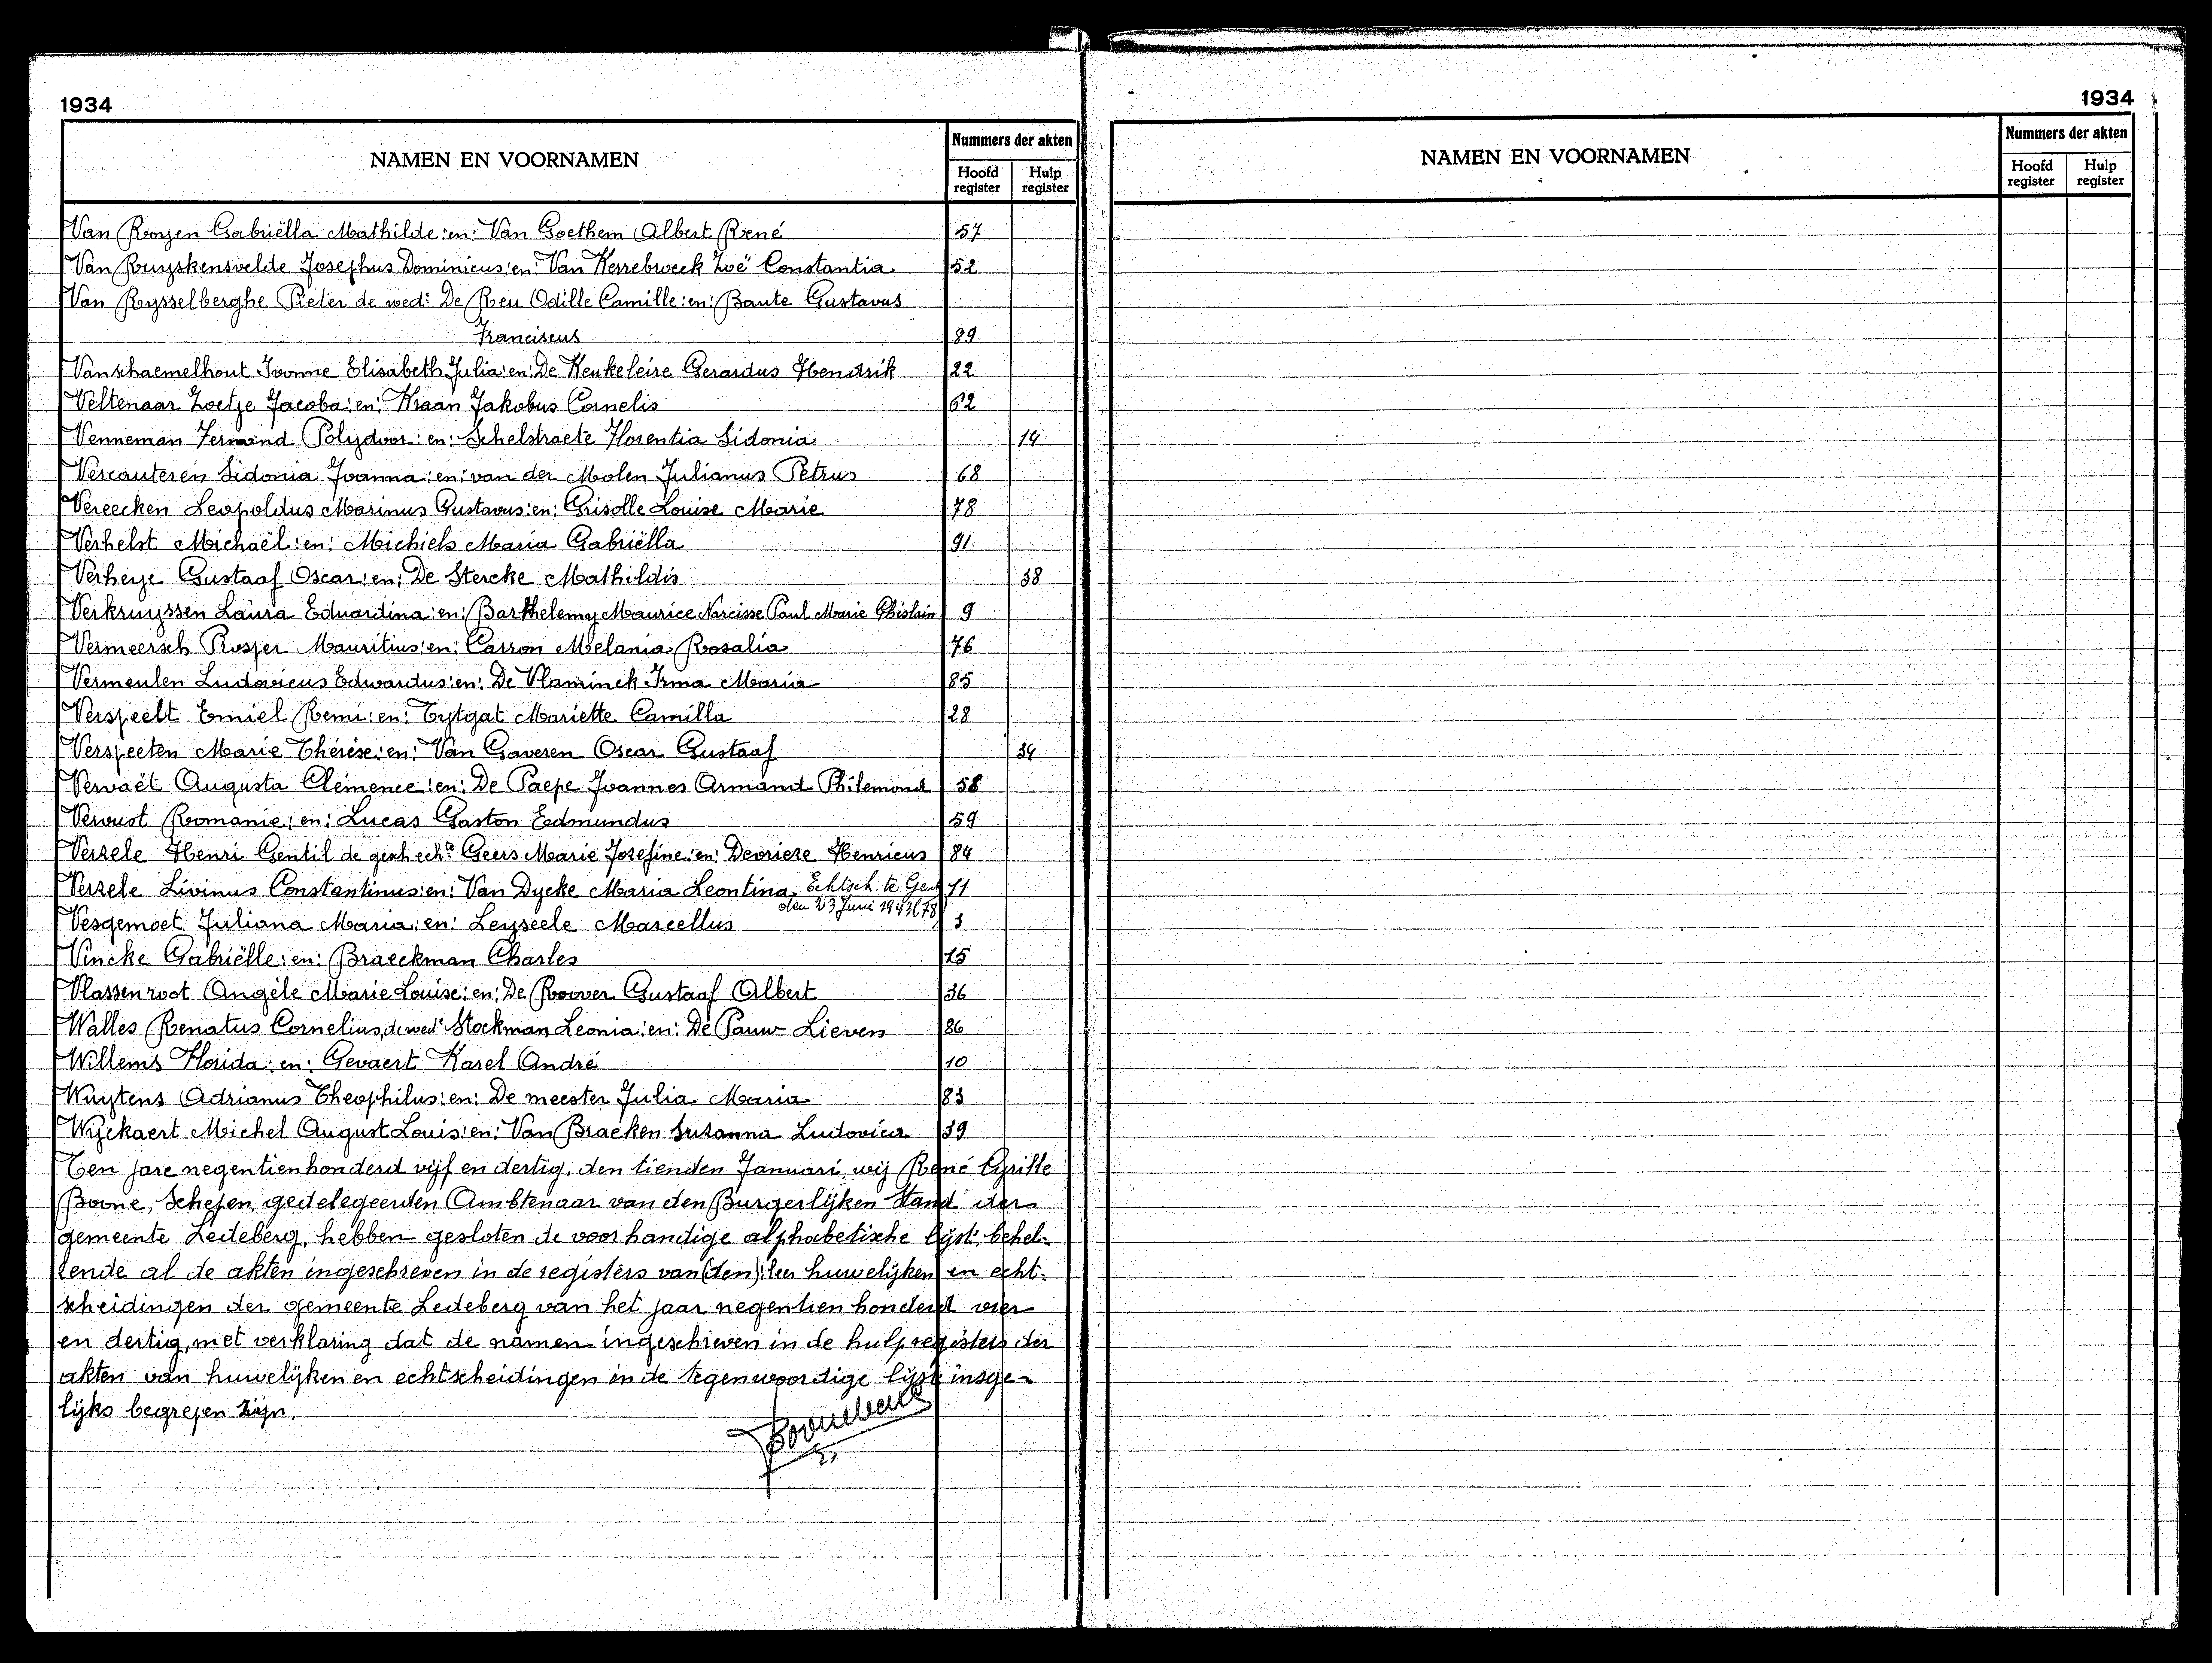 1934
NAMEN EN VOORNAMEN
Nummers der akten
Hoofd register
Hulp register
Van Royen Gabriëlla Mathilde :en: Van Goethem Albert René 57
Van Ruyskensvelde Josephus Dominicus :en: Van Kerrebroeck Zoë Constantia 52
Van Rysselberghe Pieter de wede De Reu Odille Camille :en: Baute Gustavus
Franciscus 89
Vanschaemelhout Ivonne Elisabeth Julia :en: De Keukeleire Gerardus Hendrik 22
Veltenaar Zoetje Jacoba :en: Kraan Jakobus Cornelis 62
Venneman Fernand Polydoor :en: Schelstraete Florentia Sidonia 14
Vercauteren Sidonia Joanna :en: van der Molen Julianus Petrus 68
Vereecken Leopoldus Marinus Gustavus :en: Grisolle Louise Marie 78
Verhelst Michaël :en: Michiels Maria Gabriëlla 91
Verheye Gustaaf Oscar :en: De Stercke Mathildis 38
Verkruyssen Laura Eduardina :en: Barthelemy Maurice Narcisse Paul Marie Ghislain 9
Vermeersch Prosper Mauritius :en: Carron Melania Rosalia 76
Vermeulen Ludovicus Edwardus :en: De Vlaminck Irma Maria 85
Verspeelt Emiel Remi :en: Tytgat Mariette Camilla 28
Verspeeten Marie Thérèse :en: Van Gaveren Oscar Gustaaf 34
Vervaët Augusta Clémence :en: De Paepe Joannes Armand Philemond 58
Vervust Romanie :en: Lucas Gaston Edmundus 59
Verzele Henri Gentil de gesch echte Geers Marie Josefine :en: Devrieze Henricus 84
Verzele Livinus Constantinus :en: Van Dycke Maria Leontina. Echtsch. te Gent 71
den 23 Juni 1943 (78)
Vesgemoet Juliana Maria :en: Leyseele Marcellus 3
Vincke Gabriëlle :en: Braeckman Charles 15
Vlassenroot Angèle Marie Louise :en: De Roover Gustaaf Albert 36
Walles Renatus Cornelius, de wede Stockman Leonia :en: De Pauw Lieven 86
Willems Florida :en: Gevaert Karel André 10
Wuytens Adrianus Theophilus :en: De meester Julia Maria 83
Wijckaert Michel August Louis :en: Van Bracken Suzanna Ludovica 39
Ten jare negentienhonderd vijf en dertig, den tienden Januari, wij René Cyrille
Boone, Schepen, gedelegeerden Ambtenaar van den Burgerlijken Stand der
gemeente Ledeberg, hebben gesloten de voorhandige alphabetische lijst, behel-
zende al de akten ingeschreven in de registers van (den) :der huwelijken en echt-
scheidingen der gemeente Ledeberg van het jaar negentien honderd vier
en dertig, met verklaring dat de namen ingeschreven in de hulpregisters der
akten van huwelijken en echtscheidingen in de tegenwoordige lijst insge-
lijks begrepen zijn.
1934
NAMEN EN VOORNAMEN
Nummers der akten
Hoofd register
Hulp register